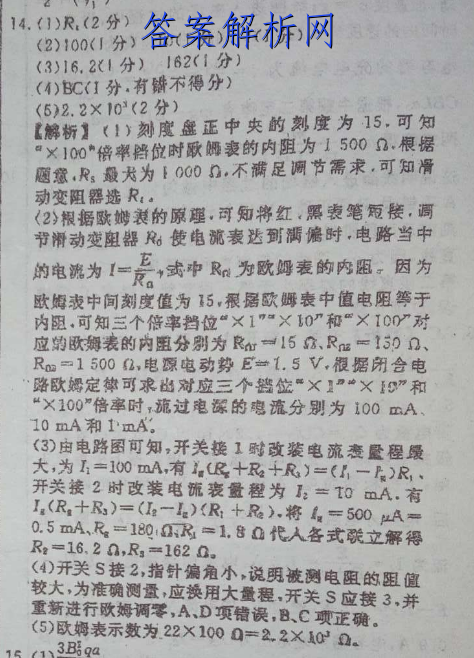 14.(1)R₁(2分)
答案解析网
(2)100(1分)
(3)16.2(1分) 162(1分)
(4)BC(1分,有错不得分)
(5)2.2×10³(2分)
【解析】(1)刻度盘正中央的刻度为15,可知
“×100”倍率挡位时欧姆表的内阻为1 500 Ω,根据
题意,R₅最大为1 000 Ω,不满足调节需求,可知滑
动变阻器选
(2)根据欧姆表的原理,可知将红、黑表笔短接,调
节滑动变阻器R₆使电流表达到满偏时,电路当中
的电流为I=E/RΩ,式中RΩ为欧姆表的内阻。因为
欧姆表中间刻度值为15,根据欧姆表中值电阻等于
内阻,可知三个倍率挡位“×1”“×10”和“×100”对
应的欧姆表的内阻分别为RΩ1=15 Ω、RΩ2=150 Ω、
RΩ3=1 500 Ω,电源电动势E=1.5 V,根据闭合电
路欧姆定律可求出对应三个挡位“×1”“×10”和
“×100”倍率时,流过电源的电流分别为100 mA、
10 mA和1 mA。
(3)由电路图可知,开关接1时改装电流表量程最
大,为I₁=100 mA,有Ig(Rg+R₂+R₃)=(I₁-Ig)R₁、
开关接2时改装电流表量程为I₂=10 mA,有
Ig(Rg+R₃)=(I₂-Ig)(R₁+R₂),将Ig=500 μA=
0.5 mA、Rg=180 Ω、R₁=1.8 Ω代入各式联立解得
R₂=16.2 Ω,R₃=162 Ω。
(4)开关S接2,指针偏角小,说明被测电阻的阻值
较大,为准确测量,应换用大量程,开关S应接3,并
重新进行欧姆调零,A、D项错误,B、C项正确。
(5)欧姆表示数为22×100 Ω=2.2×10³ Ω。
15.(1)3B₀²qa